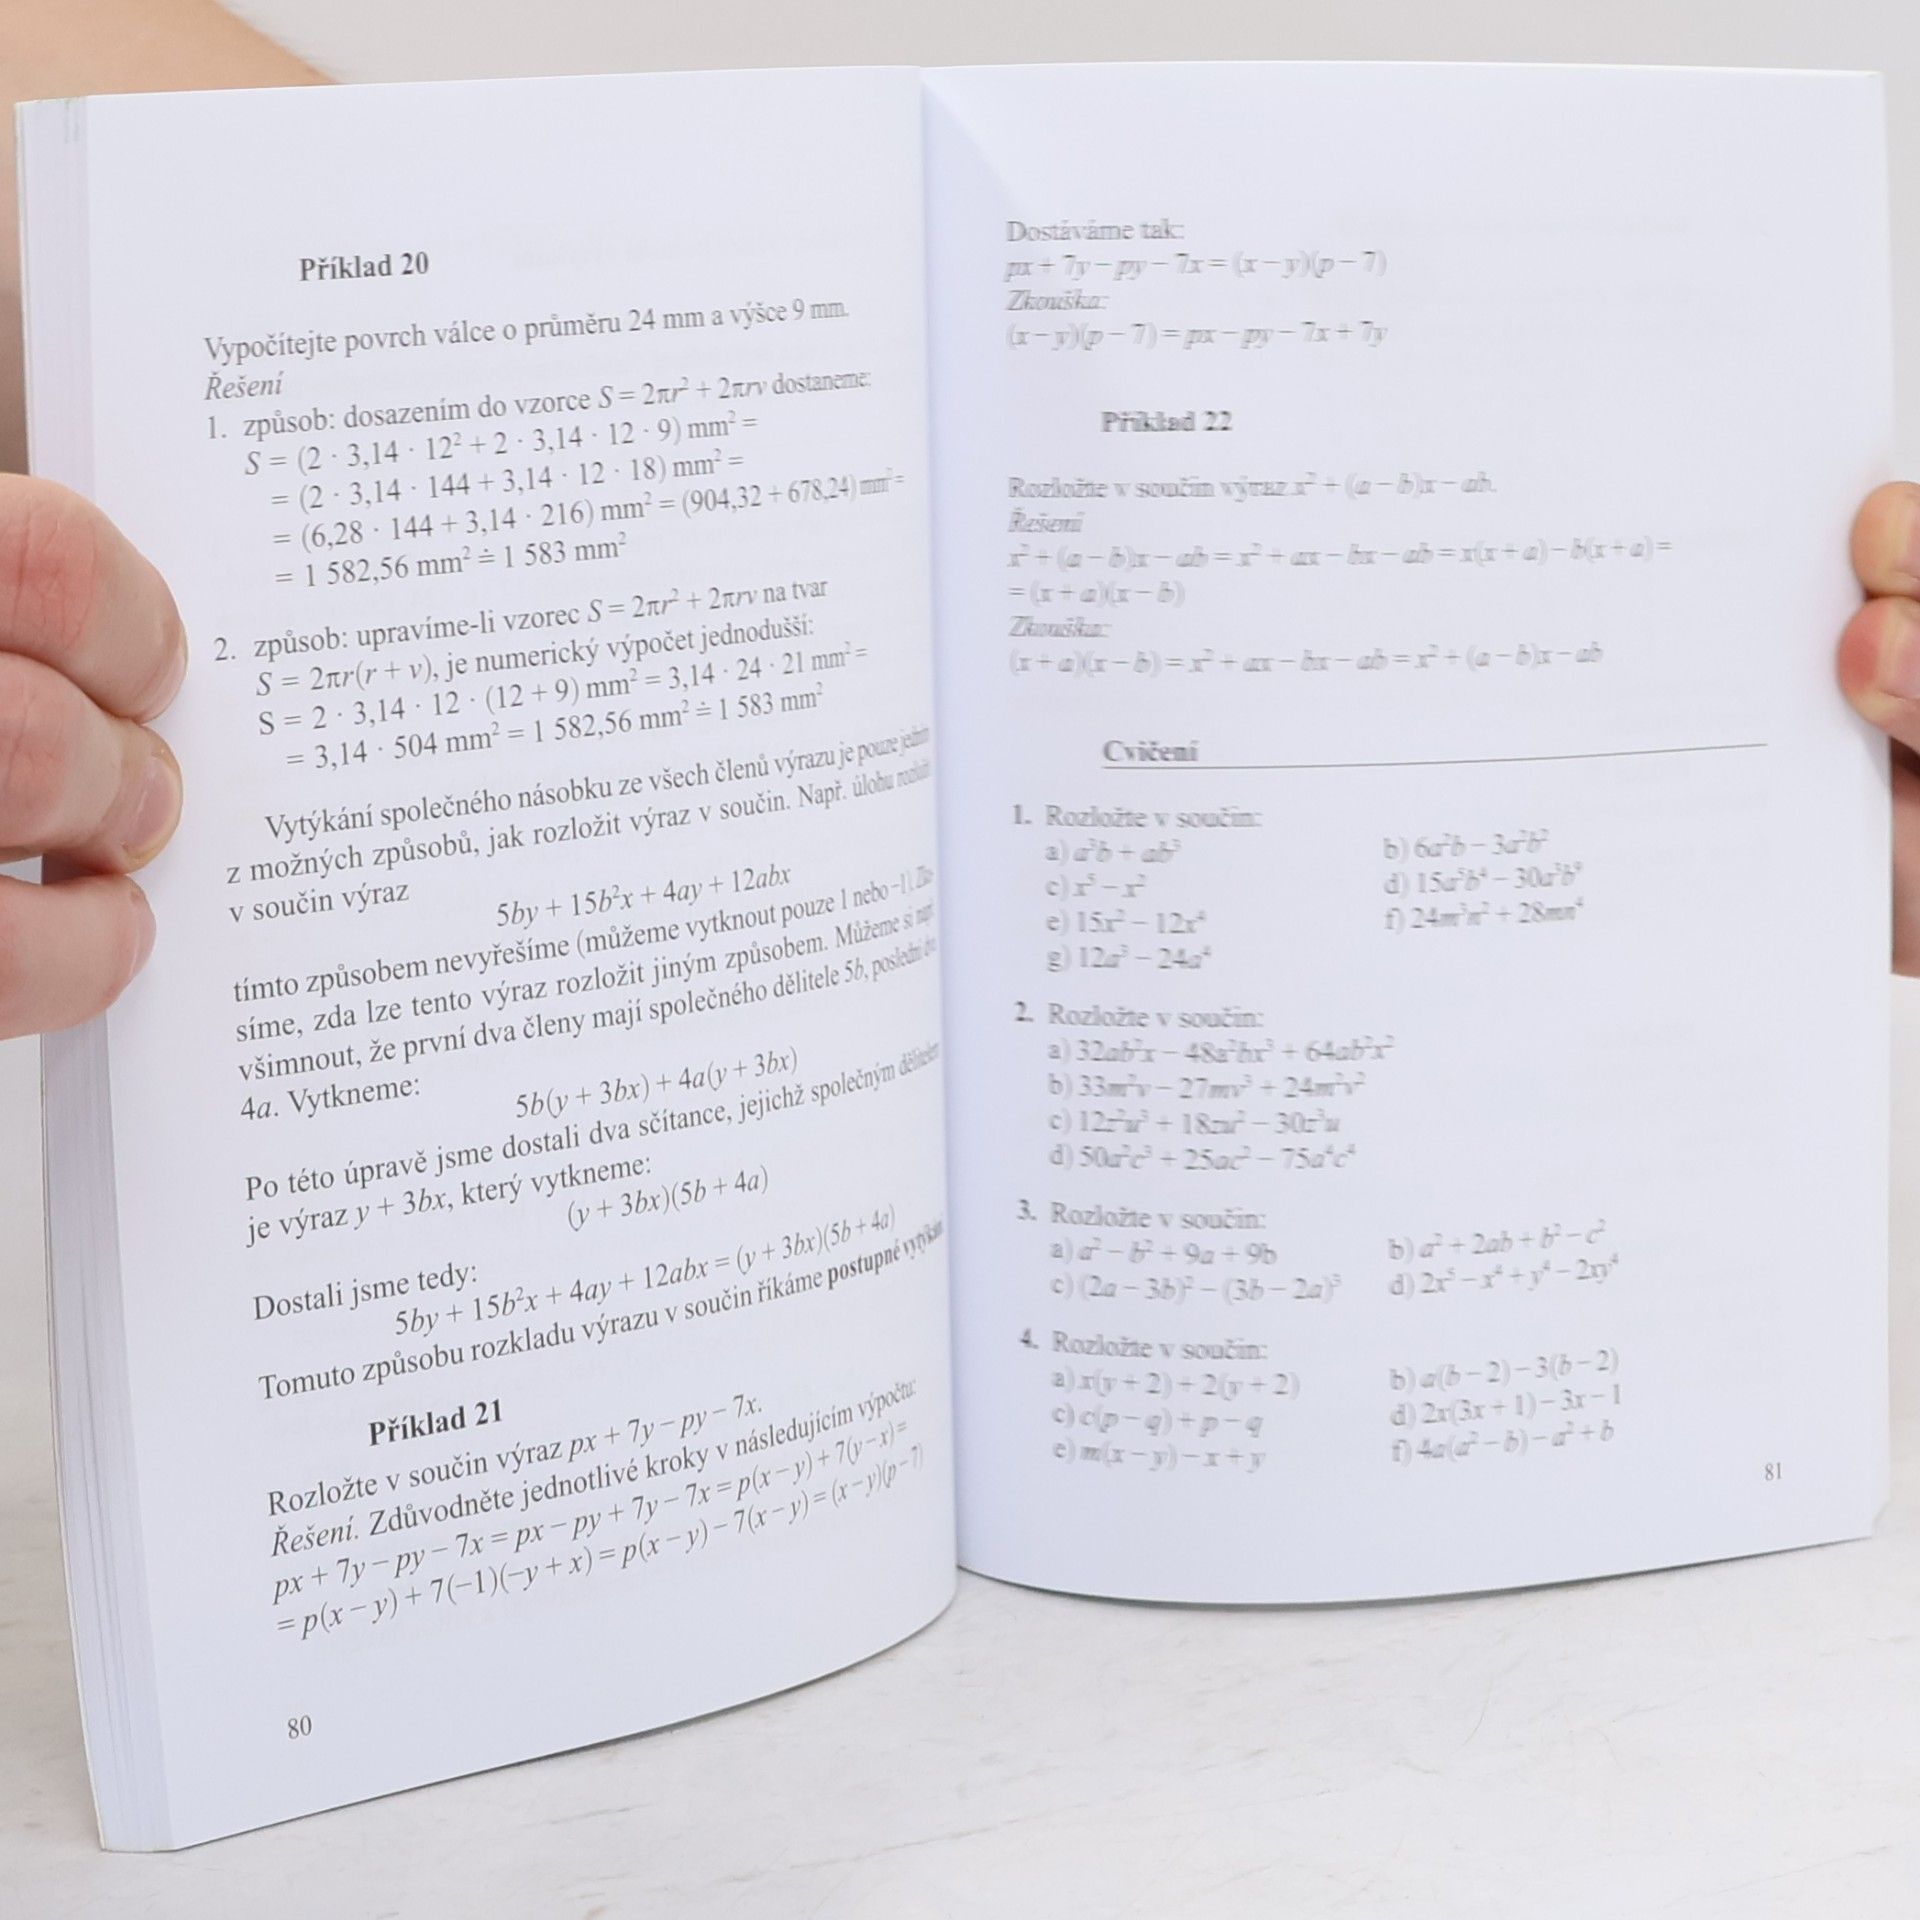 Příklad 20
Vypočítejte povrch válce o průměru 24 mm a výšce 9 mm.
Řešení
1. způsob: dosazením do vzorce S = 2πr² + 2πrv dostaneme:
S = (2 · 3,14 · 12² + 2 · 3,14 · 12 · 9) mm² =
= (2 · 3,14 · 144 + 3,14 · 12 · 18) mm² =
= (6,28 · 144 + 3,14 · 216) mm² = (904,32 + 678,24) mm² =
= 1 582,56 mm² ≐ 1 583 mm²
2. způsob: upravíme-li vzorec S = 2πr² + 2πrv na tvar
S = 2πr(r + v), je numerický výpočet jednodušší:
S = 2 · 3,14 · 12 · (12 + 9) mm² = 3,14 · 24 · 21 mm² =
= 3,14 · 504 mm² = 1 582,56 mm² ≐ 1 583 mm²
Vytýkání společného násobku ze všech členů výrazu je pouze jedním
z možných způsobů, jak rozložit výraz v součin. Např. úlohu rozložit
v součin výraz
5by + 15b²x + 4ay + 12abx
tímto způsobem nevyřešíme (můžeme vytknout pouze 1 nebo −1).
síme, zda lze tento výraz rozložit jiným způsobem. Můžeme si např.
všimnout, že první dva členy mají společného dělitele 5b, poslední dva
4a. Vytkneme:
5b(y + 3bx) + 4a(y + 3bx)
Po této úpravě jsme dostali dva sčítance, jejichž společným dělitelem
je výraz y + 3bx, který vytkneme:
(y + 3bx)(5b + 4a)
Dostali jsme tedy:
5by + 15b²x + 4ay + 12abx = (y + 3bx)(5b + 4a)
Tomuto způsobu rozkladu výrazu v součin říkáme postupné vytýkání.
Příklad 21
Rozložte v součin výraz px + 7y − py − 7x.
Řešení. Zdůvodněte jednotlivé kroky v následujícím výpočtu:
px + 7y − py − 7x = px − py + 7y − 7x = p(x − y) + 7(y − x) =
= p(x − y) + 7(−1)(−y + x) = p(x − y) − 7(x − y) = (x − y)(p − 7)
80
Dostáváme tak:
px + 7y − py − 7x = (x − y)(p − 7)
Zkouška:
(x − y)(p − 7) = px − py − 7x + 7y
Příklad 22
Rozložte v součin výraz x² + (a − b)x − ab.
Řešení
x² + (a − b)x − ab = x² + ax − bx − ab = x(x + a) − b(x + a) =
= (x + a)(x − b)
Zkouška:
(x + a)(x − b) = x² + ax − bx − ab = x² + (a − b)x − ab
Cvičení
1. Rozložte v součin:
a) a³b + ab³ b) 6a²b − 3a²b²
c) x⁵ − x² d) 15a⁵b⁴ − 30a³b⁹
e) 15x² − 12x⁴ f) 24m³n² + 28mn⁴
g) 12a³ − 24a⁴
2. Rozložte v součin:
a) 32ab²x − 48a²bx³ + 64ab²x²
b) 33m²v − 27mv³ + 24m²v²
c) 12z²u³ + 18zu² − 30z³u
d) 50a²c³ + 25ac² − 75a⁴c⁴
3. Rozložte v součin:
a) a² − b² + 9a + 9b b) a² + 2ab + b² − c²
c) (2a − 3b)² − (3b − 2a)³ d) 2x⁵ − x⁴ + y⁴ − 2xy⁴
4. Rozložte v součin:
a) x(y + 2) + 2(y + 2) b) a(b − 2) − 3(b − 2)
c) c(p − q) + p − q d) 2x(3x + 1) − 3x − 1
e) m(x − y) − x + y f) 4a(a² − b) − a² + b
81